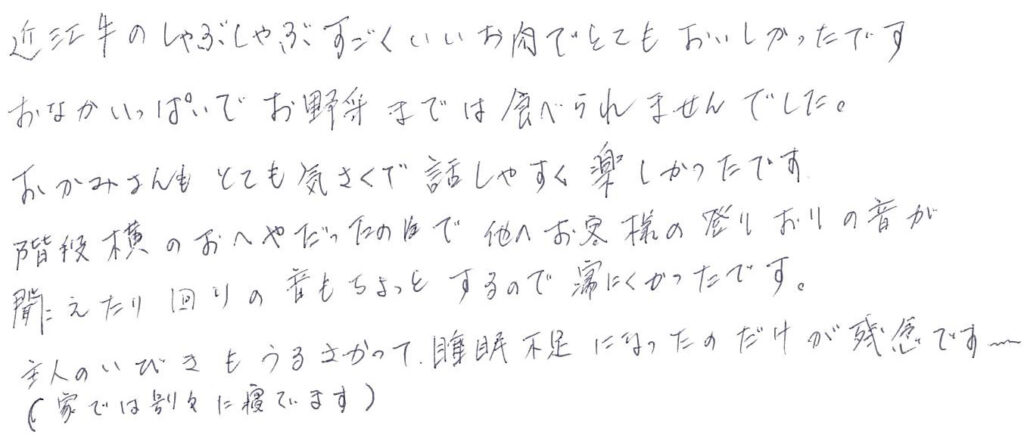 近江牛のしゃぶしゃぶすごくいいお肉でとてもおいしかったです
おなかいっぱいでお野菜までは食べられませんでした。
おかみさんもとても気さくで話しやすく楽しかったです
階段横のおへやだったので他のお客様の登りおりの音が
聞こえたり回りの音もちょっとするので寝にくかったです。
主人のいびきもうるさかって、睡眠不足になったのだけが残念です〜
(家では別々に寝ています)